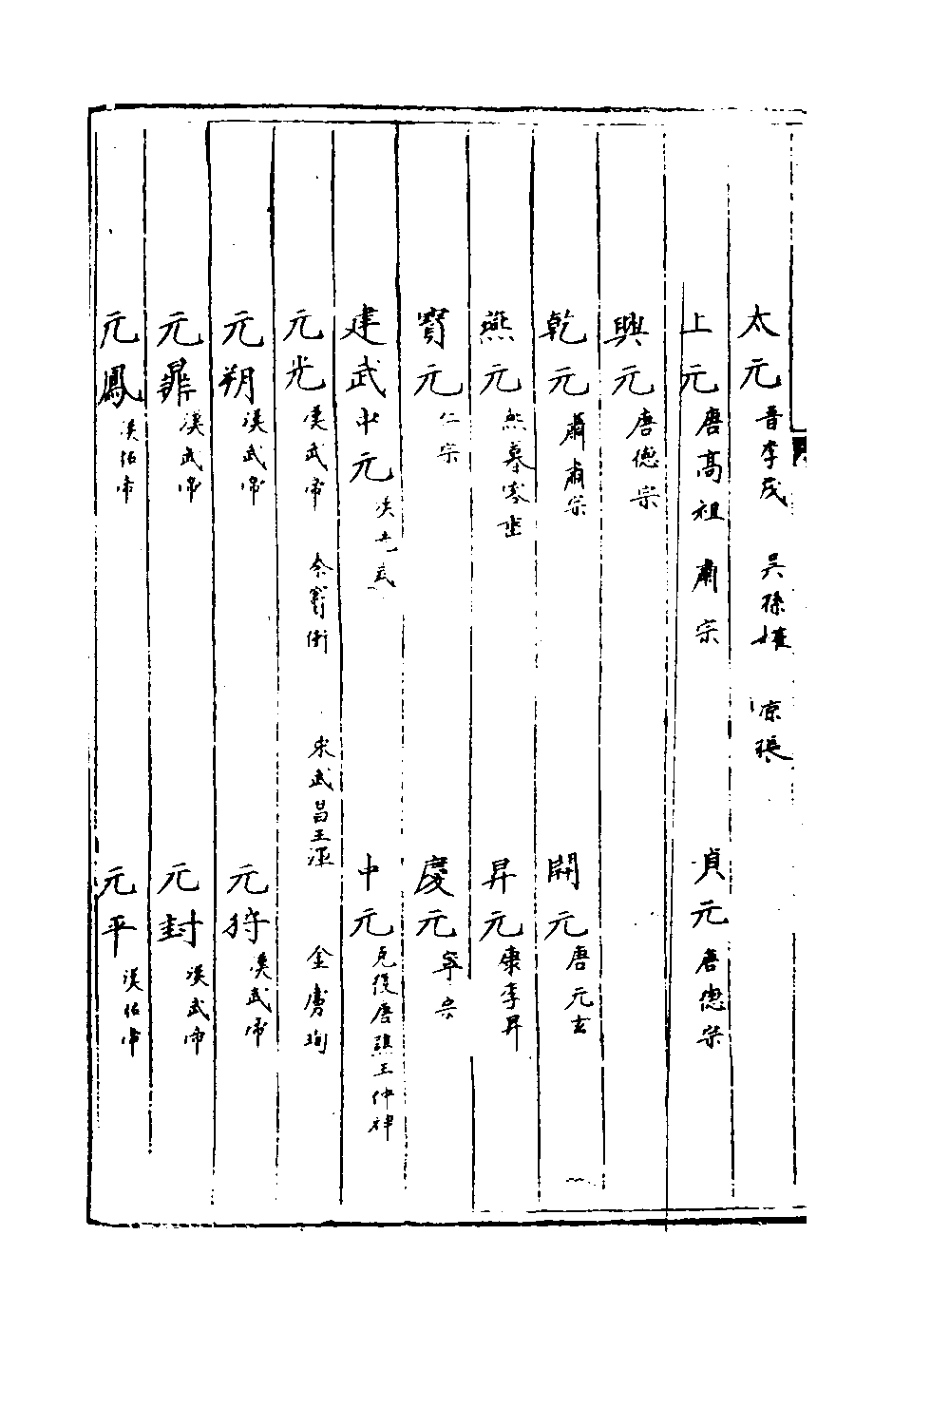 太元 晋李茂 吴孫權 凉張
上元 唐髙祖 肅宗 貞元 唐德宗
興元 唐德宗
乾元 肅肅宗 開元 唐元玄
燕元 慕容 昇元 李昇
寳元 仁宗 慶元 寧宗
建武中元 漢光武 中元 唐王仲
元光 漢武帝 宋武昌王渾 金珣
元朔 漢武帝 元狩 漢武帝
元鼎 漢武帝 元封 漢武帝
元鳳 漢昭帝 元平 漢昭帝